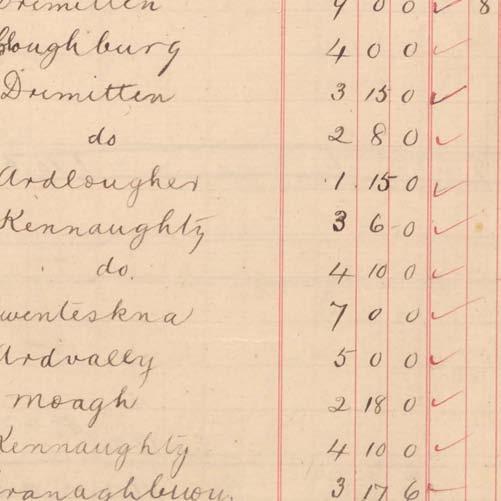 Drimitten 9 0 0 ✓ 8
Cloughburg 4 0 0 ✓
Drimitten 3 15 0 ✓
do 2 8 0 ✓
Ardlougher 1 15 0 ✓
Kennaughty 3 6 0 ✓
do. 4 10 0 ✓
7 0 0 ✓
Ardvally 5 0 0 ✓
moagh 2 18 0 ✓
Kennaughty 4 10 0 ✓
3 17 6